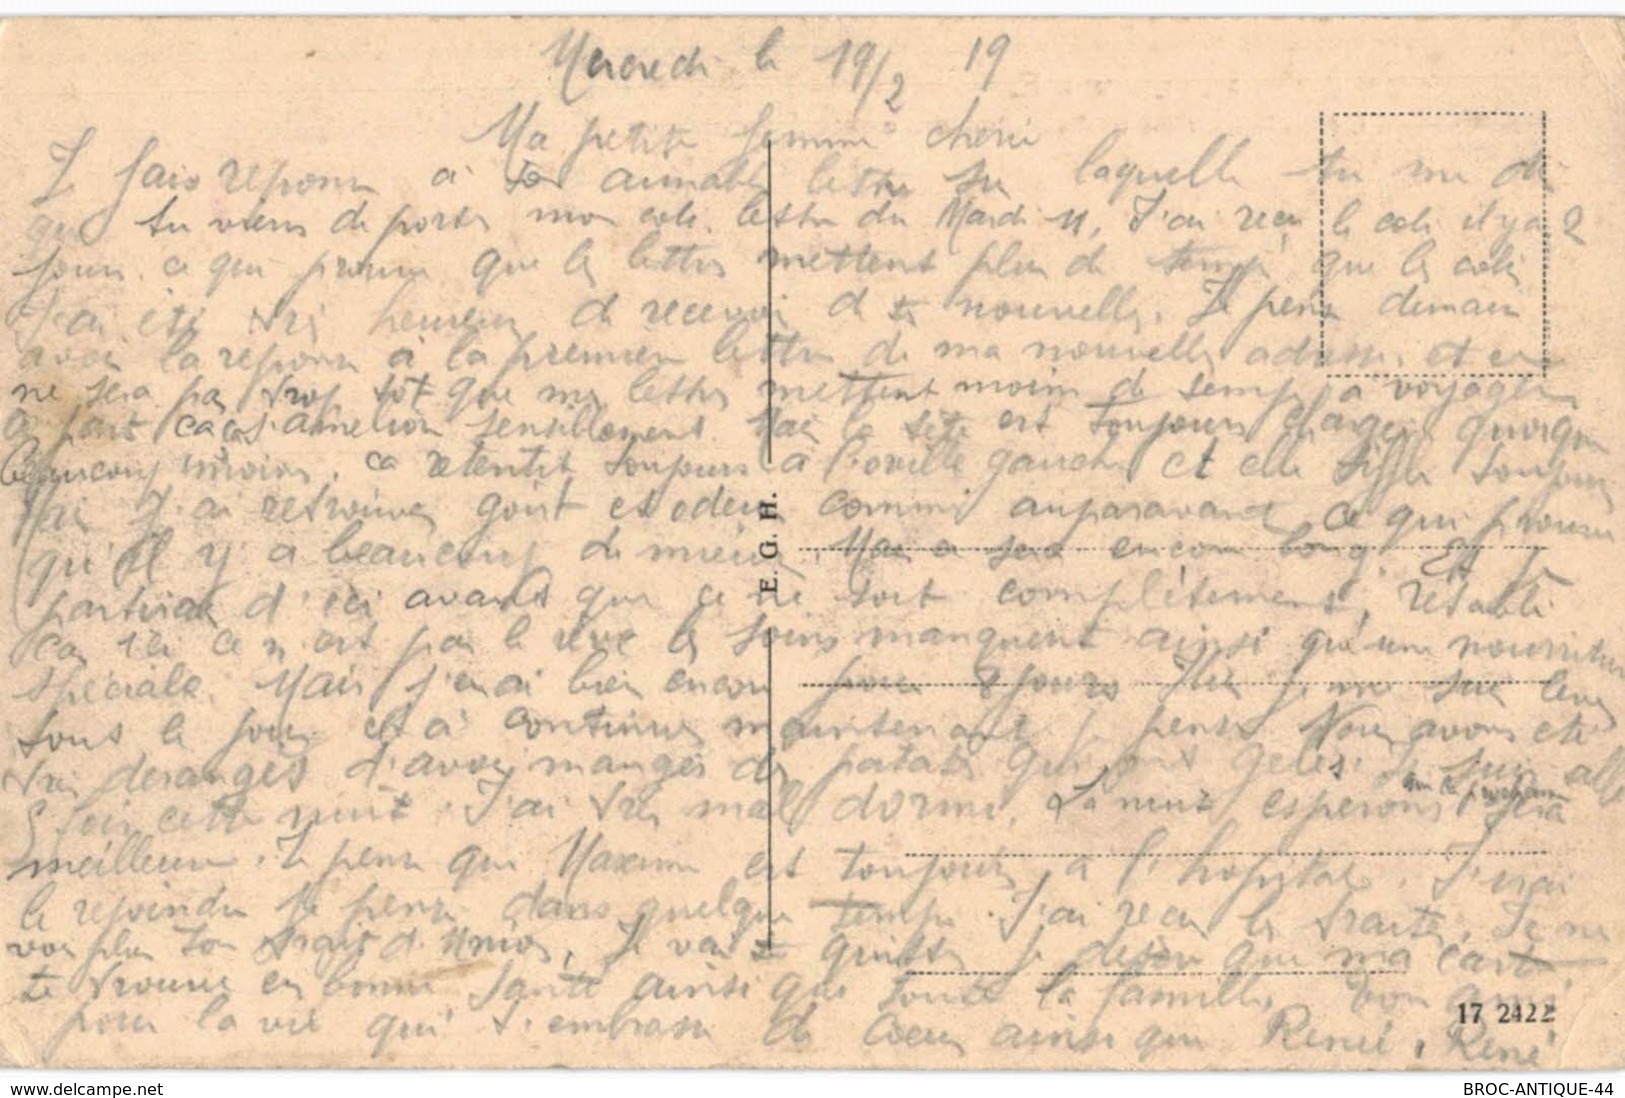 Mercredi le 19/2 19
Ma petite femme cherie
Je fais reponse à ton aimable lettre sur laquelle tu me dis
que tu viens de porter mon coli. lettre du Mardi 11, J'ai reçu le coli il y a 2
jours. ce qui prouve que les lettres mettent plus de temps que les colis
J'ai été très heureux de recevoir de tes nouvelles. Je pense demain
avoir la reponse à la premiere lettre de ma nouvelle adresse, et ce
ne sera pas trop tôt que mes lettres mettent moins de temps a voyager
ca s'amelior sensiblement. Mais la tête est toujours chargée quoique
beaucoup moins. ca retentit toujours à l'oreille gauche et elle siffle toujours
Mais J'ai retrouver goût et odeur comme auparavant ce qui prouve
qu'il y a beaucoup de mieux. Mais ce sera encore long. Et je
partirai d'ici avant que ce ne soit complètement, retabli
car ici ce n'est pas le rêve les soins manquent ainsi qu'une nourriture
speciale. Mais j'en ai bien encore pour 8 jours Hier je me suis lever
tous le jour et à continuer maintenant je pense Nous avons été
très derangés d'avoir manger des patates qui ont geles. Je suis allé
5 fois cette nuit. J'ai très mal dormi. La nuit esperons que la prochaine sera
meilleure. Je pense que Maxime est toujours a l'hopital. J'irai
le rejoindre je pense dans quelque temps. J'ai reçu les traites. Je ne
voi plus ton trait d'union. Je vais te quitter je desire que ma carte
te trouve en bonne santé ainsi que toute la famille, ton ami
pour la vie qui t'embrasse de coeur ainsi que Renée. René
E. G. H.
17 2422
delcampe.net
BROC-ANTIQUE-44